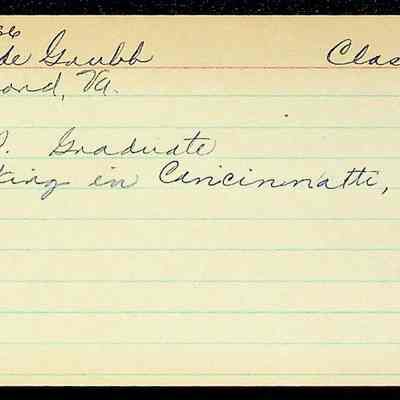 36
de Grubb Clas
ord, Va.
D. Graduate
king in Cancinnatti,